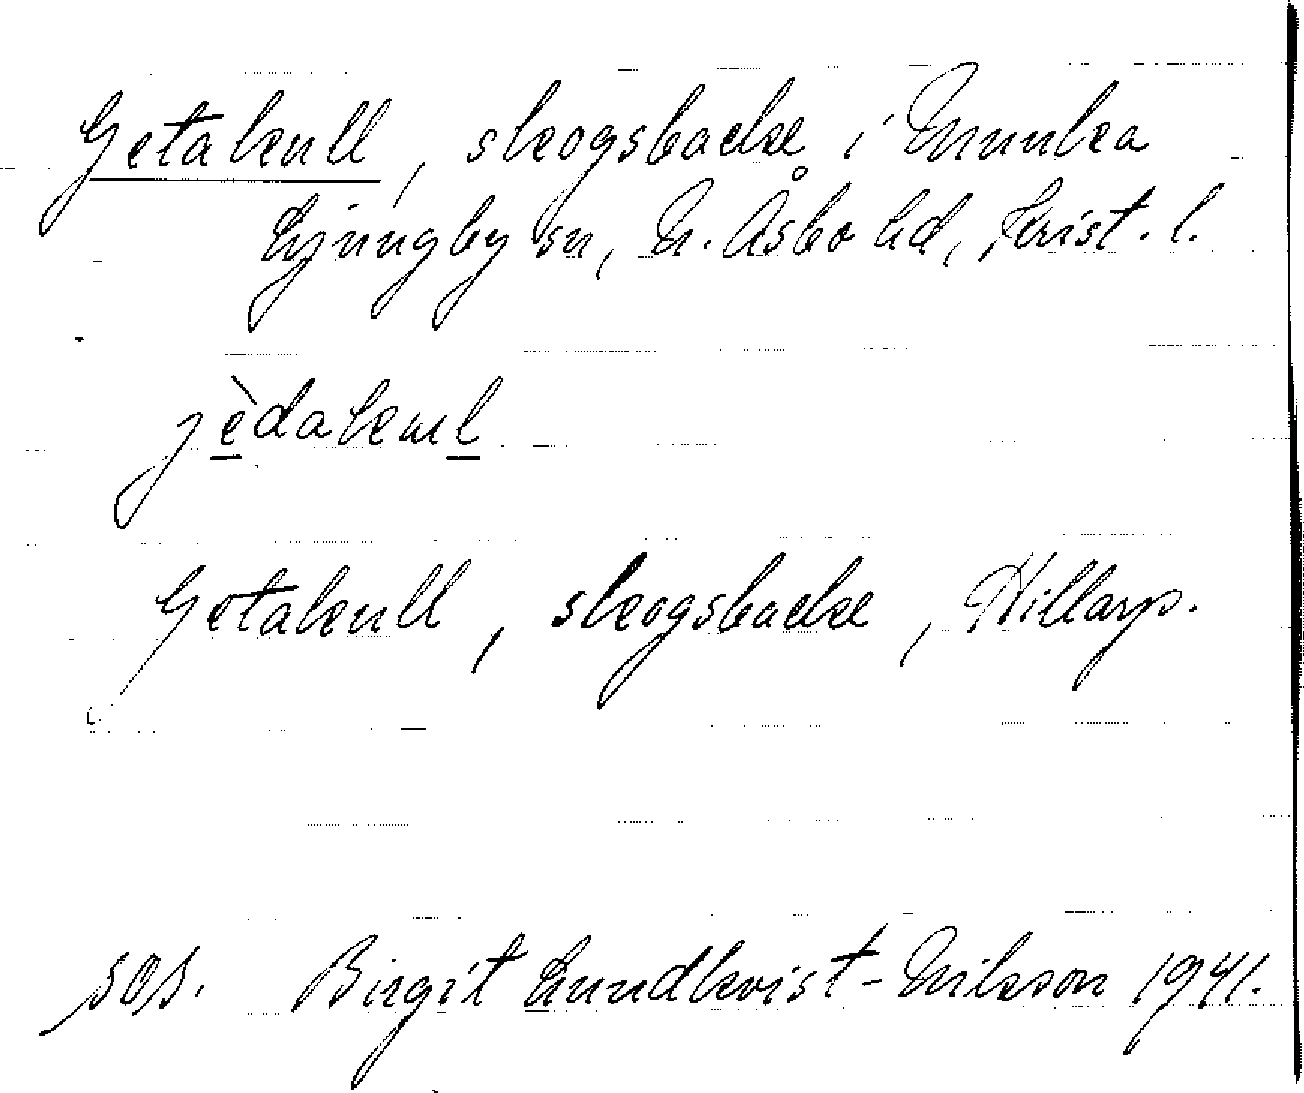 Getakull, skogsbacke i Munka
Ljungby sn, N. Åsbo hd, Krist. l.
jèdakul
Getakull, skogsbacke, Hillarp.
sos. Birgit Lundkvist-Nilsson 1941.